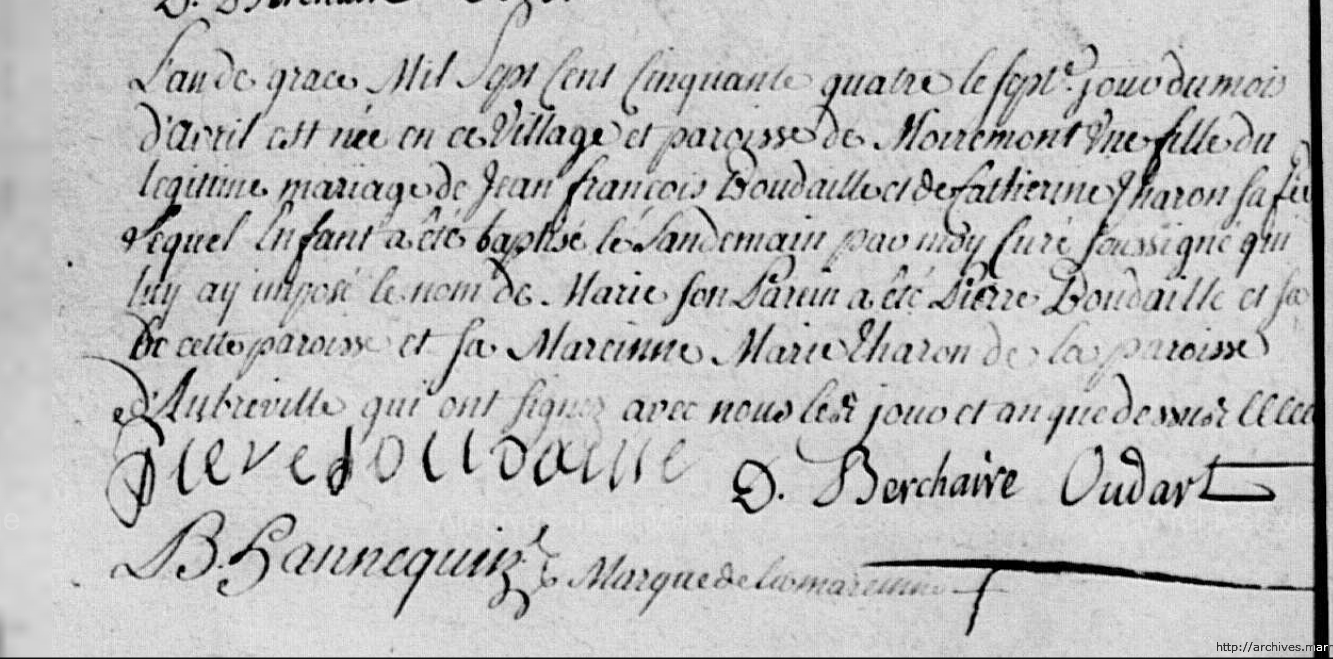 L'an de grace Mil Sept Cent Cinquante quatre le sept.e jour du mois
d'avril est née en ce Village et paroisse de Moiremont Une fille du
legitime mariage de Jean françois Boudaille et de Catherinne Tharon sa fe
lequel Enfant a été baptisé le Landemain par moy Curé soussigné qui
luy ay imposé le nom de Marie son Parein a été Pierre Boudaille et
De cette paroisse et sa Mareinne Marie Tharon de la paroisse
d'Aubreville qui ont signez avec nous les jour et an que dessus
Piere boudaille D. Berchaire Oudart
B. Hannequin Marque de la mareinne
http://archives.mar